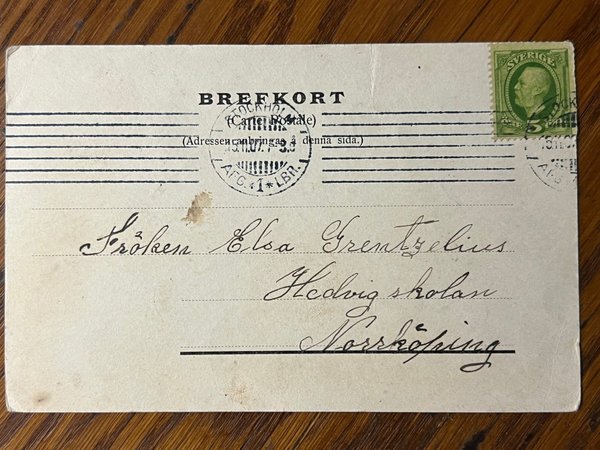 SVERIGE
5
BREFKORT
(Carte Postale)
(Adressen anbringas å denna sida.)
STOCKHOLM
AFG. *1* LBR.
STOCKHOLM
AFG.
Fröken Elsa Grentzelius
Hedvigskolan
Norrköping